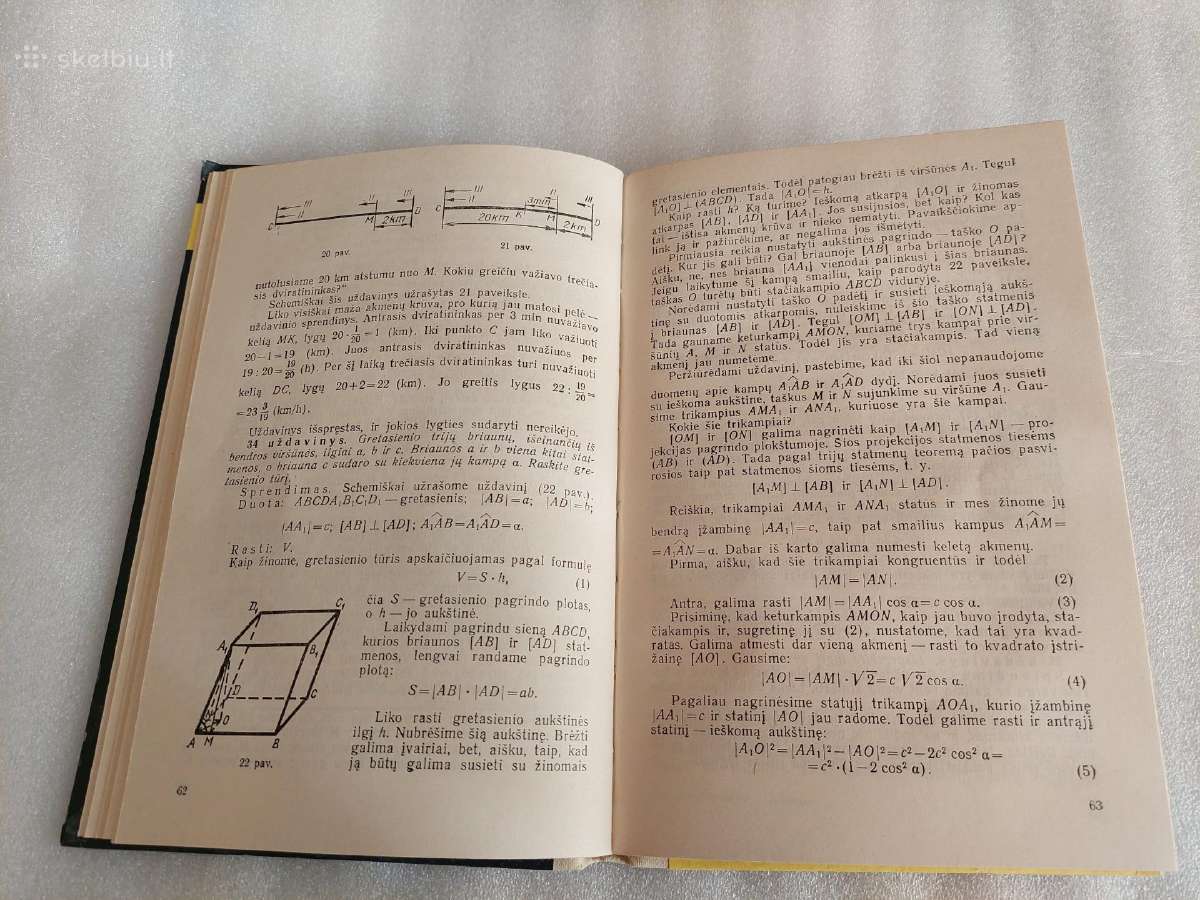 skelbiu.lt
III
II
II
III
C
M
D
2km
20 pav.
III
II
3min
II
III
C
20km
K
M
2km
D
21 pav.
nutolusiame 20 km atstumu nuo M. Kokiu greičiu važiavo trečia-
sis dviratininkas?"
Schemiškai šis uždavinys užrašytas 21 paveiksle.
Liko visiškai maža akmenų krūva, pro kurią jau matosi pelė —
uždavinio sprendinys. Antrasis dviratininkas per 3 min nuvažiavo
kelią MK, lygų 20·1/20=1 (km). Iki punkto C jam liko važiuoti
20—1=19 (km). Juos antrasis dviratininkas nuvažiuos per
19:20=19/20 (h). Per šį laiką trečiasis dviratininkas turi nuvažiuoti
kelią DC, lygų 20+2=22 (km). Jo greitis lygus 22:19/20=
=23 3/19 (km/h).
Uždavinys išspręstas, ir jokios lygties sudaryti nereikėjo.
34 uždavinys. Gretasienio trijų briaunų, išeinančių iš
bendros viršūnės, ilgiai a, b ir c. Briaunos a ir b viena kitai stat-
menos, o briauna c sudaro su kiekviena jų kampą α. Raskite gre-
tasienio tūrį.
Sprendimas. Schemiškai užrašome uždavinį (22 pav.).
Duota: ABCDA₁B₁C₁D₁ — gretasienis; |AB|=a; |AD|=b;
|AA₁|=c; [AB]⊥[AD]; A₁AB=A₁AD=α.
Rasti: V.
Kaip žinome, gretasienio tūris apskaičiuojamas pagal formulę
V=S·h, (1)
čia S — gretasienio pagrindo plotas,
o h — jo aukštinė.
Laikydami pagrindu sieną ABCD,
kurios briaunos [AB] ir [AD] stat-
menos, lengvai randame pagrindo
plotą:
S=|AB|·|AD|=ab.
Liko rasti gretasienio aukštinės
ilgį h. Nubrėšime šią aukštinę. Brėžti
galima įvairiai, bet, aišku, taip, kad
ją būtų galima susieti su žinomais
D₁
C₁
A₁
B₁
D
C
N
O
A
M
B
22 pav.
62
gretasienio elementais. Todėl patogiau brėžti iš viršūnės A₁. Tegul
[A₁O]⊥(ABCD). Tada |A₁O|=h.
Kaip rasti h? Ką turime? Ieškomą atkarpą [A₁O] ir žinomas
atkarpas [AB], [AD] ir [AA₁]. Jos susijusios, bet kaip? Kol kas
tai — ištisa akmenų krūva ir nieko nematyti. Pavaikščiokime ap-
link ją ir pažiūrėkime, ar negalima jos išmėtyti.
Pirmiausia reikia nustatyti aukštinės pagrindo — taško O pa-
dėtį. Kur jis gali būti? Gal briaunoje [AB] arba briaunoje [AD]?
Aišku, ne, nes briauna [AA₁] vienodai palinkusi į šias briaunas.
Jeigu laikytume šį kampą smailiu, kaip parodyta 22 paveiksle,
taškas O turėtų būti stačiakampio ABCD viduryje.
Norėdami nustatyti taško O padėtį ir susieti ieškomąją aukš-
tinę su duotomis atkarpomis, nuleiskime iš šio taško statmenis
į briaunas [AB] ir [AD]. Tegul [OM]⊥[AB] ir [ON]⊥[AD].
Tada gauname keturkampį AMON, kuriame trys kampai prie vir-
šūnių A, M ir N status. Todėl jis yra stačiakampis. Tad vieną
akmenį jau numetėme.
Peržiūrėdami uždavinį, pastebime, kad iki šiol nepanaudojome
duomenų apie kampų A₁AB ir A₁AD dydį. Norėdami juos susieti
su ieškoma aukštine, taškus M ir N sujunkime su viršūne A₁. Gau-
sime trikampius AMA₁ ir ANA₁, kuriuose yra šie kampai.
Kokie šie trikampiai?
[OM] ir [ON] galima nagrinėti kaip [A₁M] ir [A₁N] — pro-
jekcijas pagrindo plokštumoje. Šios projekcijos statmenos tiesėms
(AB) ir (AD). Tada pagal trijų statmenų teoremą pačios pasvi-
rosios taip pat statmenos šioms tiesėms, t. y.
[A₁M]⊥[AB] ir [A₁N]⊥[AD].
Reiškia, trikampiai AMA₁ ir ANA₁ status ir mes žinome jų
bendrą įžambinę |AA₁|=c, taip pat smailius kampus A₁AM=
=A₁AN=α. Dabar iš karto galima numesti keletą akmenų.
Pirma, aišku, kad šie trikampiai kongruentūs ir todėl
|AM|=|AN|. (2)
Antra, galima rasti |AM|=|AA₁| cos α=c cos α. (3)
Prisiminę, kad keturkampis AMON, kaip jau buvo įrodyta, sta-
čiakampis ir, sugretinę jį su (2), nustatome, kad tai yra kvad-
ratas. Galima atmesti dar vieną akmenį — rasti to kvadrato įstri-
žainę [AO]. Gausime:
|AO|=|AM|·√2=c √2 cos α. (4)
Pagaliau nagrinėsime statųjį trikampį AOA₁, kurio įžambinę
|AA₁|=c ir statinį |AO| jau radome. Todėl galime rasti ir antrąjį
statinį — ieškomą aukštinę:
|A₁O|²=|AA₁|²—|AO|²=c²—2c² cos² α=
=c²·(1—2 cos² α). (5)
63